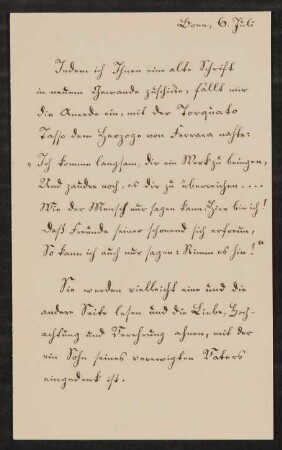 Bonn, 6. Juli
Indem ich Ihnen eine alte Schrift
in neuem Gewande zuschicke, fällt mir
die Anrede ein, mit der Torquato
Tasso dem Herzoge von Ferrara nahte:
„Ich komme langsam, dir ein Werk zu bringen,
Und zaudre noch, es dir zu überreichen....
Wie der Mensch nur sagen kann: Hier bin ich!
Daß Freunde seiner schonend sich erfreun,
So kann ich auch nur sagen: Nimm es hin!“
Sie werden vielleicht eine und die
andere Seite lesen und die Liebe, Hoch-
achtung und Verehrung ahnen, mit der
ein Sohn seines verewigten Vaters
eingedenk ist.